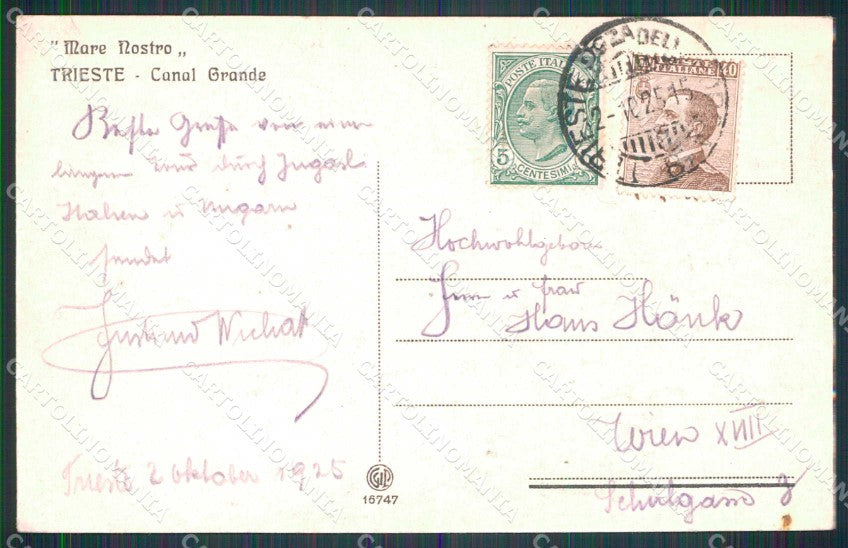 "Mare Nostro„
TRIESTE - Canal Grande
Beste Grüße von einer
langen durch Jugosl.
Italien u Ungarn
sendet
Trieste 2 Oktober 1925
POSTE ITALIANE
5
CENTESIMI
40
ITALIANE
TRIESTE
2-10 25 15
Hochwohlgeboren
Herrn u Frau
Hans Hönk
Wien XVIII
Schulgasse
GIP
16747
CARTOLINOMANIA